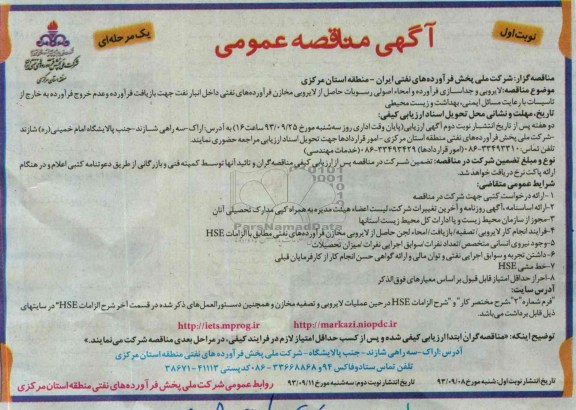 نوبت اول
آگهی مناقصه عمومی
یک مرحله‌ای
شرکت ملی پخش فرآورده‌های نفتی ایران
منطقه استان مرکزی
مناقصه گزار: شرکت ملی پخش فرآورده‌های نفتی ایران - منطقه استان مرکزی
موضوع مناقصه: لایروبی و جداسازی فرآورده و امحاء اصولی رسوبات حاصل از لایروبی مخازن فرآورده‌های نفتی داخل انبار نفت جهت بازیافت فرآورده و عدم خروج فرآورده به خارج از
تاسیسات با رعایت مسائل ایمنی، بهداشت و زیست محیطی
تاریخ، مهلت و نشانی محل تحویل اسناد ارزیابی کیفی:
دو هفته پس از تاریخ انتشار نوبت دوم آگهی ارزیابی (پایان وقت اداری روز سه‌شنبه مورخ ۹۳/۰۹/۲۵ ساعت ۱۶) به آدرس: اراک- سه راهی شازند- جنب پالایشگاه امام خمینی (ره) شازند
شرکت ملی پخش فرآورده‌های نفتی منطقه استان مرکزی - امور قراردادها جهت تحویل اسناد ارزیابی مراجعه حضوری نمایند.
تلفن تماس: ۳۳۴۹۳۳۱۰-۰۸۶ (امور قراردادها) ۳۳۴۹۳۴۲۹-۰۸۶ (خدمات مهندسی)
نوع و مبلغ تضمین شرکت در مناقصه: تضمین شرکت در مناقصه پس از ارزیابی کیفی مناقصه‌گران و تائید آنها توسط کمیته فنی و بازرگانی از طریق دعوتنامه کتبی اعلام و در هنگام
ارائه پاکت نرخ دریافت خواهد شد.
شرایط عمومی متقاضی:
۱- ارائه درخواست کتبی جهت شرکت در مناقصه
۲- ارائه اساسنامه و آگهی روزنامه و آخرین تغییرات شرکت، لیست اعضاء هیئت مدیره به همراه کپی مدارک تحصیلی آنان
۳- مجوز از سازمان محیط زیست و یا ادارات کل محیط زیست استانها
۴- فرآیند انجام کار لایروبی / تصفیه / بازیافت / امحاء لجن حاصل از لایروبی مخازن فرآورده‌های نفتی مطابق با الزامات HSE
۵- وجود نیروی انسانی متخصص / تعداد نفرات / سوابق اجرایی نفرات / میزان تحصیلات
۶- داشتن تجربه و سوابق اجرایی نفتی و توان مالی و ارائه گواهی حسن انجام کار از کارفرمایان قبلی
۷- خط مشی HSE
۸- احراز حداقل امتیاز قابل قبول بر اساس معیارهای فوق الذکر
آدرس سایت:
"فرم شماره ۲"، "شرح مختصر کار" و "شرح الزامات HSE در حین عملیات لایروبی و تصفیه مخازن و همچنین دستورالعمل‌های ذکر شده در قسمت آخر شرح الزامات HSE" در سایتهای
ذیل قابل برداشت می‌باشد.
http://iets.mprog.ir http://markazi.niopdc.ir
توضیح اینکه: «مناقصه‌گران ابتدا ارزیابی کیفی شده و پس از کسب حداقل امتیاز لازم در فرایند کیفی، در مراحل بعدی مناقصه شرکت می‌نمایند.»
آدرس: اراک- سه راهی شازند - جنب پالایشگاه - شرکت ملی پخش فرآورده‌های نفتی منطقه استان مرکزی
تلفن تماس ستاد و فاکس ۹۴ و ۳۳۶۶۸۸۶۸-۰۸۶ - کد پستی ۴۱۱۱۳-۳۸۶۷۱
تاریخ انتشار نوبت اول: شنبه مورخ ۹۳/۰۹/۰۸
تاریخ انتشار نوبت دوم: سه‌شنبه مورخ ۹۳/۰۹/۱۱
روابط عمومی شرکت ملی پخش فرآورده‌های نفتی منطقه استان مرکزی
ParsNamadData